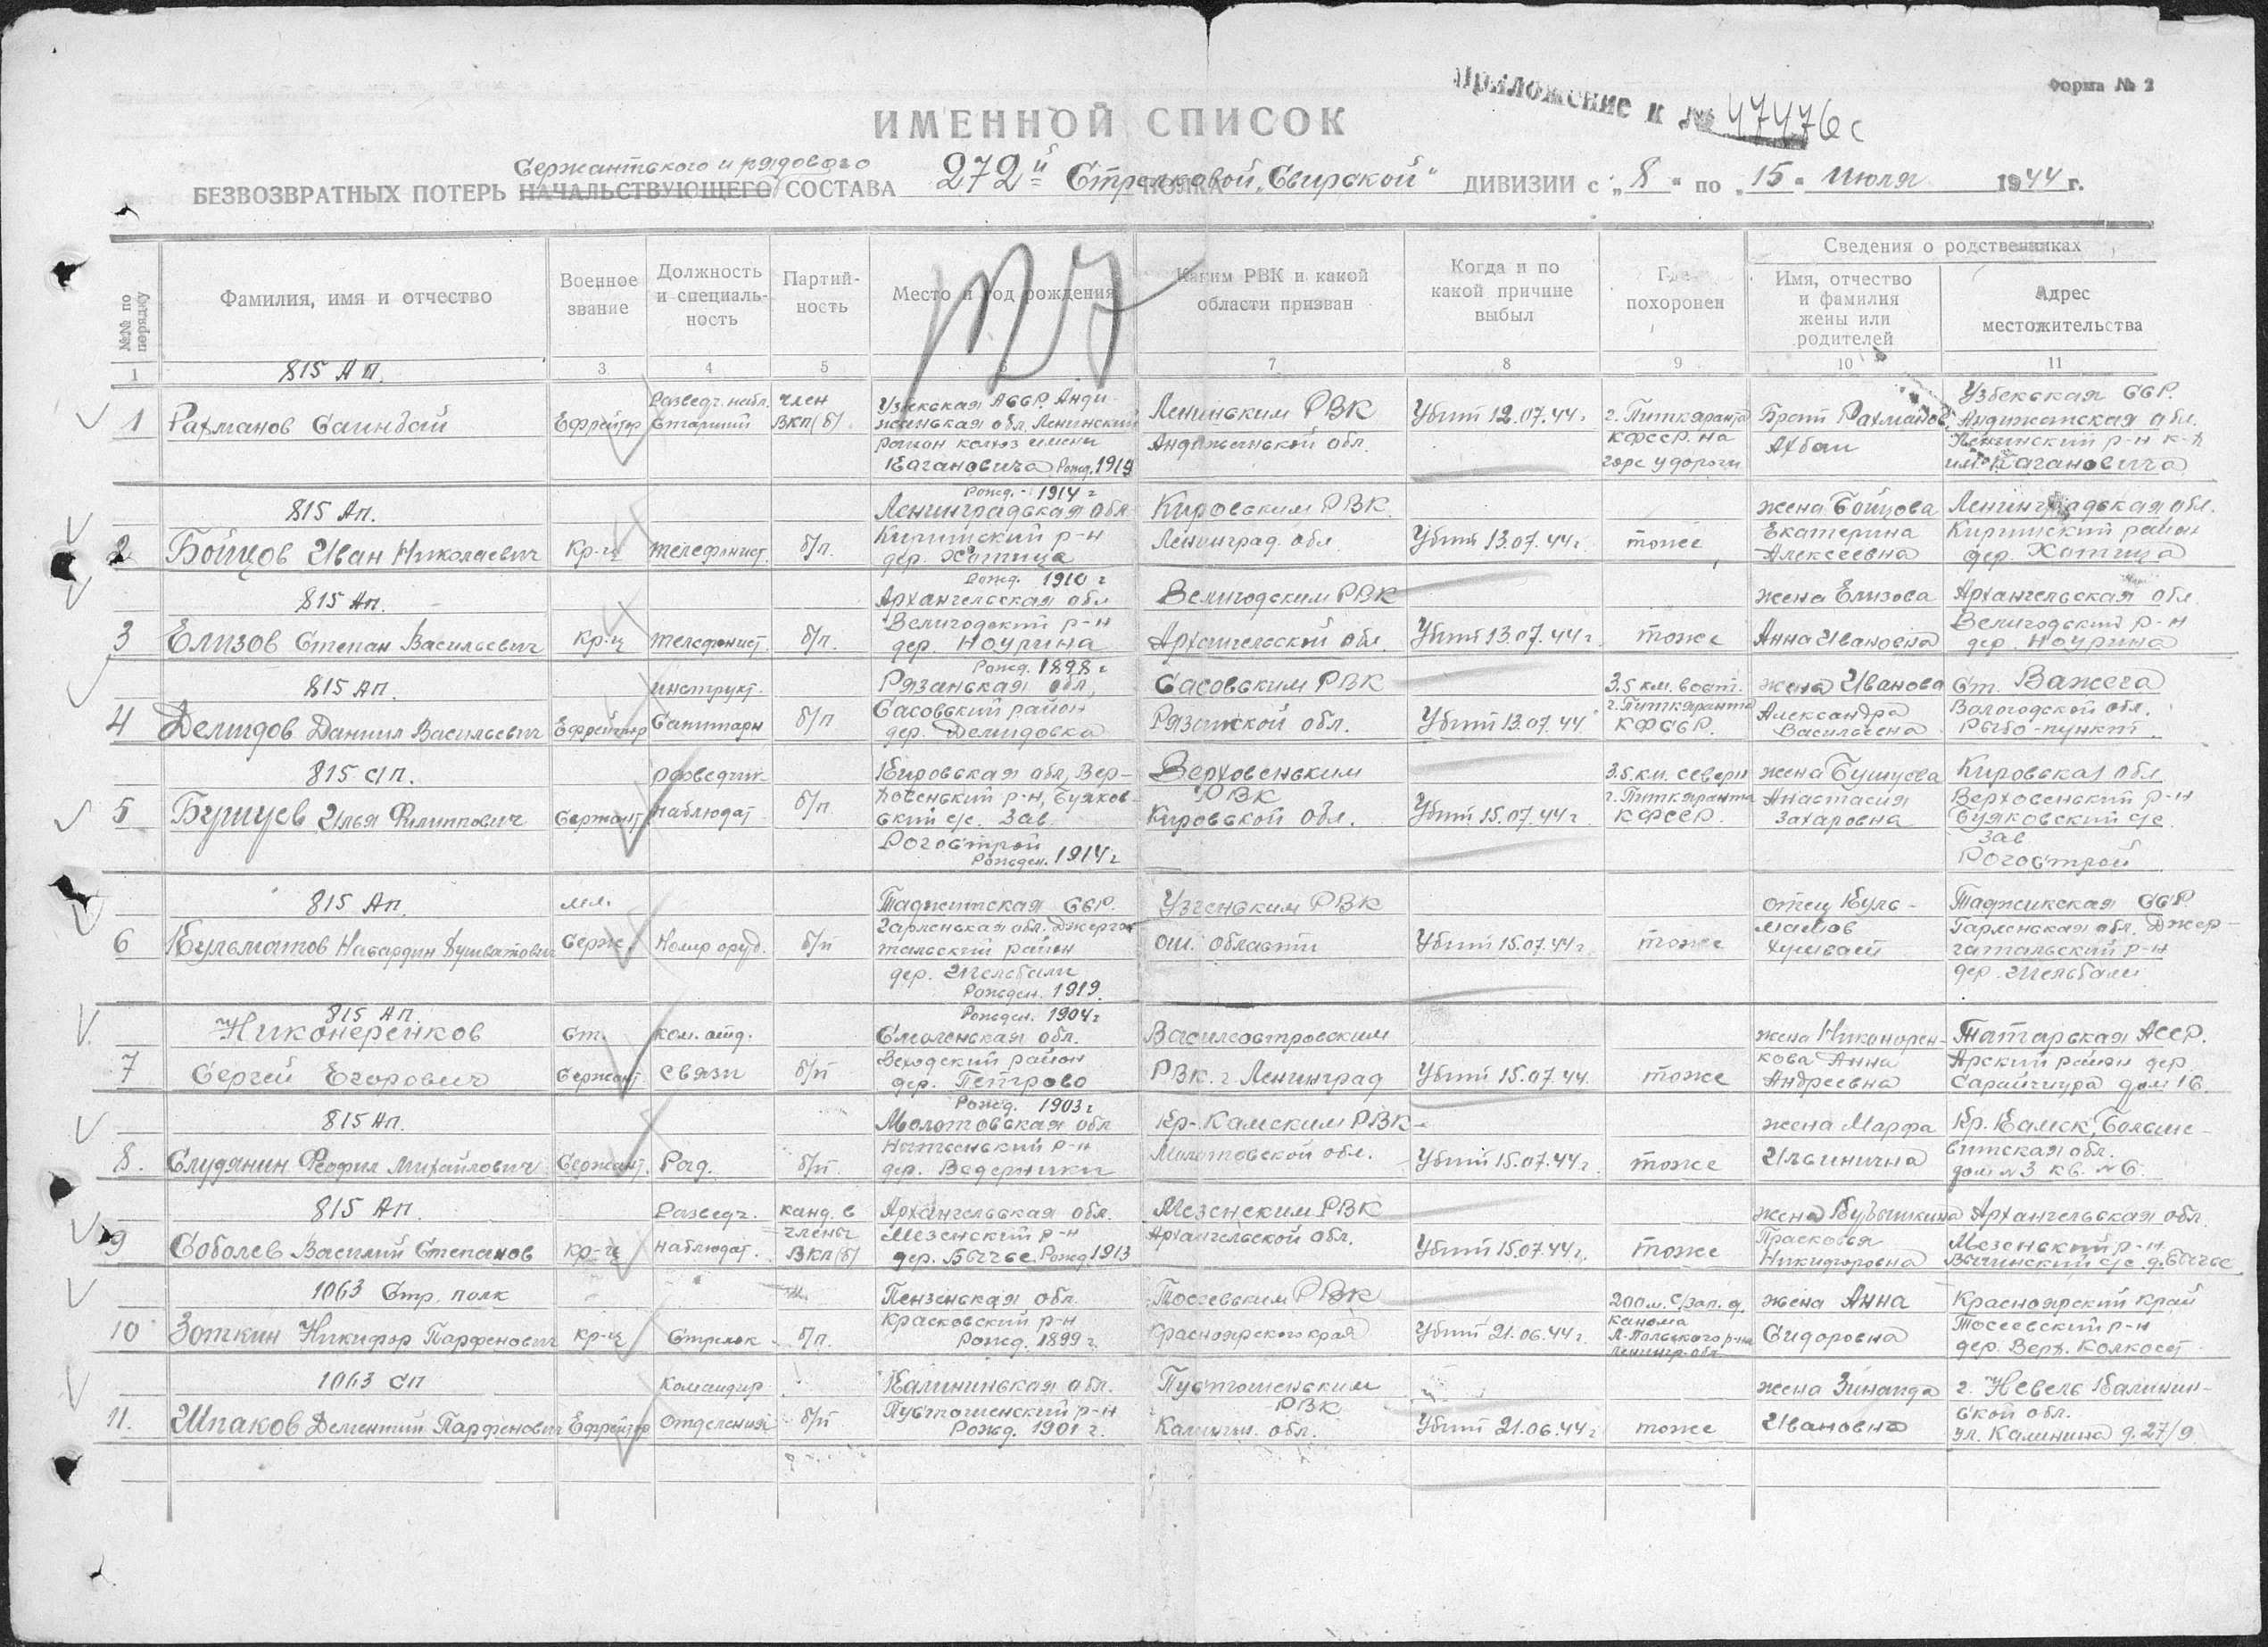 Форма № 2
Приложение к № 47476с
ИМЕННОЙ СПИСОК
Сержантского и рядового
БЕЗВОЗВРАТНЫХ ПОТЕРЬ НАЧАЛЬСТВУЮЩЕГО СОСТАВА 272й Стрелковой „Свирской“ ДИВИЗИИ с „8“ по „15“ Июля 1944 г.
№№ по порядку
Фамилия, имя и отчество
Военное звание
Должность и специальность
Партийность
Место и год рождения
Каким РВК и какой области призван
Когда и по какой причине выбыл
Где похоронен
Сведения о родственниках
Имя, отчество и фамилия жены или родителей
Адрес местожительства
1 3 4 5 6 7 8 9 10 11
815 АП.
1 Рахманов Саинбай
Ефрейтор
Разведч. набл. Старший
член ВКП(б)
Узбекская АССР. Андижанская обл. Ленинский район колхоз имени Кагановича Рожд. 1919
Ленинским РВК Андижанской обл.
Убит 12.07.44г.
г. Питкяранта КФССР. на горе у дороги
Брат Рахманов Ахбаи
Узбекская ССР. Андижанская обл. Ленинский р-н к-з им. Кагановича
815 Ап.
2 Бойцов Иван Николаевич
Кр-ц
телефонист.
б/п.
Рожд. - 1914 г Ленинградская обл Киришский р-н дер. Хотица
Кировским РВК. Ленинград. обл
Убит 13.07.44г.
тоже
жена Бойцова Екатерина Алексеевна
Ленинградская обл. Киришский район дер. Хотица
815 Ап.
3 Елизов Степан Васильевич
Кр-ц
телефонист.
б/п.
Рожд. 1910 г Архангельская обл Вельгодский р-н дер. Ноурина
Вельгодским РВК Архангельской обл.
Убит 13.07.44г.
тоже
жена Елизова Анна Ивановна
Архангельская обл. Вельгодский р-н дер. Ноурина
815 АП.
4 Демидов Даниил Васильевич
Ефрейтор
инструкт. Санитарн
б/п
Рожд. 1898 г Рязанская обл, Сасовский район дер. Демидовка
Сасовским РВК Рязанской обл.
Убит 13.07.44г.
3.5 км. вост. г. Питкяранта КФССР.
жена Иванова Александра Васильевна
Ст. Вожега Вологодской обл. Рыбо-пункт.
815 АП.
5 Бушуев Илья Филиппович
Сержант
разведчик наблюдат.
б/п
Кировская обл, Верховенский р-н, Буяковский с/с. Зав. Рогострой Рожден. 1914 г
Верховенским РВК Кировской обл.
Убит 15.07.44г
3.5. км. северн г. Питкяранта КФССР.
жена Бушуева Анастасия Захаровна
Кировская обл Верховенский р-н Буяковский с/с зав Рогострой
815 Ап.
6 Кульматов Навардин Хушватович
мл. Серж.
Номер оруд.
б/п
Таджикская ССР. Гармская обл. Джергатальский район Рожден. 1919.
Узгенским РВК ош. области
Убит 15.07.44г.
тоже
отец Кульматов Хушват
Таджикская ССР. Джергатальский р-н
815 АП.
7 Никонеренков Сергей Егорович
Ст. Сержант
ком. отд. Связи
б/п
Рожден. 1904г Смоленская обл. район дер. Петрово
Василеостровским РВК. г. Ленинград
Убит 15.07.44.
тоже
жена Никоноренкова Анна Андреевна
Татарская АССР. Арский район дер. дом 16.
815 Ап.
8. Слудянин Феофил Михайлович
Сержант.
Рад.
б/п.
Рожд. 1903г Молотовская обл р-н дер. Ведерники
Кр.-Камским РВК Молотовской обл.
Убит 15.07.44г.
тоже
жена Марфа Ильинична
Кр. Камск дом №3 кв. №6.
815 Ап.
9 Соболев Василий Степанов
кр-ц
Разведч. наблюдат.
канд. в члены ВКП(б)
Архангельская обл. Мезенский р-н дер. Бычье. Рожд 1913
Мезенским РВК Архангельской обл.
Убит 15.07.44г.
тоже
жена Кубышкина Прасковья Никифоровна
Архангельская обл. Мезенский р-н. Бычинский с/с д. Бычье
1063 Стр. полк
10 Зоткин Никифор Парфенович
кр-ц
Стрелок
б/п.
Пензенская обл. р-н Рожд. 1899 г.
Тосеевским РВК Красноярского края
Убит 21.06.44г.
200 м. с/зап. д. канома Л-Польского р-на Ленингр. обл.
жена Анна Сидоровна
Красноярский край Тосеевский р-н дер. Верх.
1063 СП
11. Шпаков Дементий Парфенович
Ефрейтор
Командир отделения
б/п
Калининская обл. Пустошенский р-н Рожд. 1901 г.
Пустошенским РВК Калинин. обл.
Убит 21.06.44г
тоже
жена Зинаида Ивановна
г. Невель Калининской обл. ул. Калинина д. 27/9